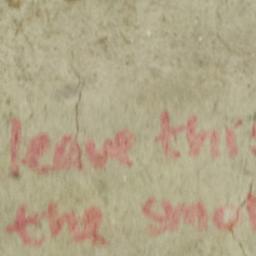 leave this
the smo